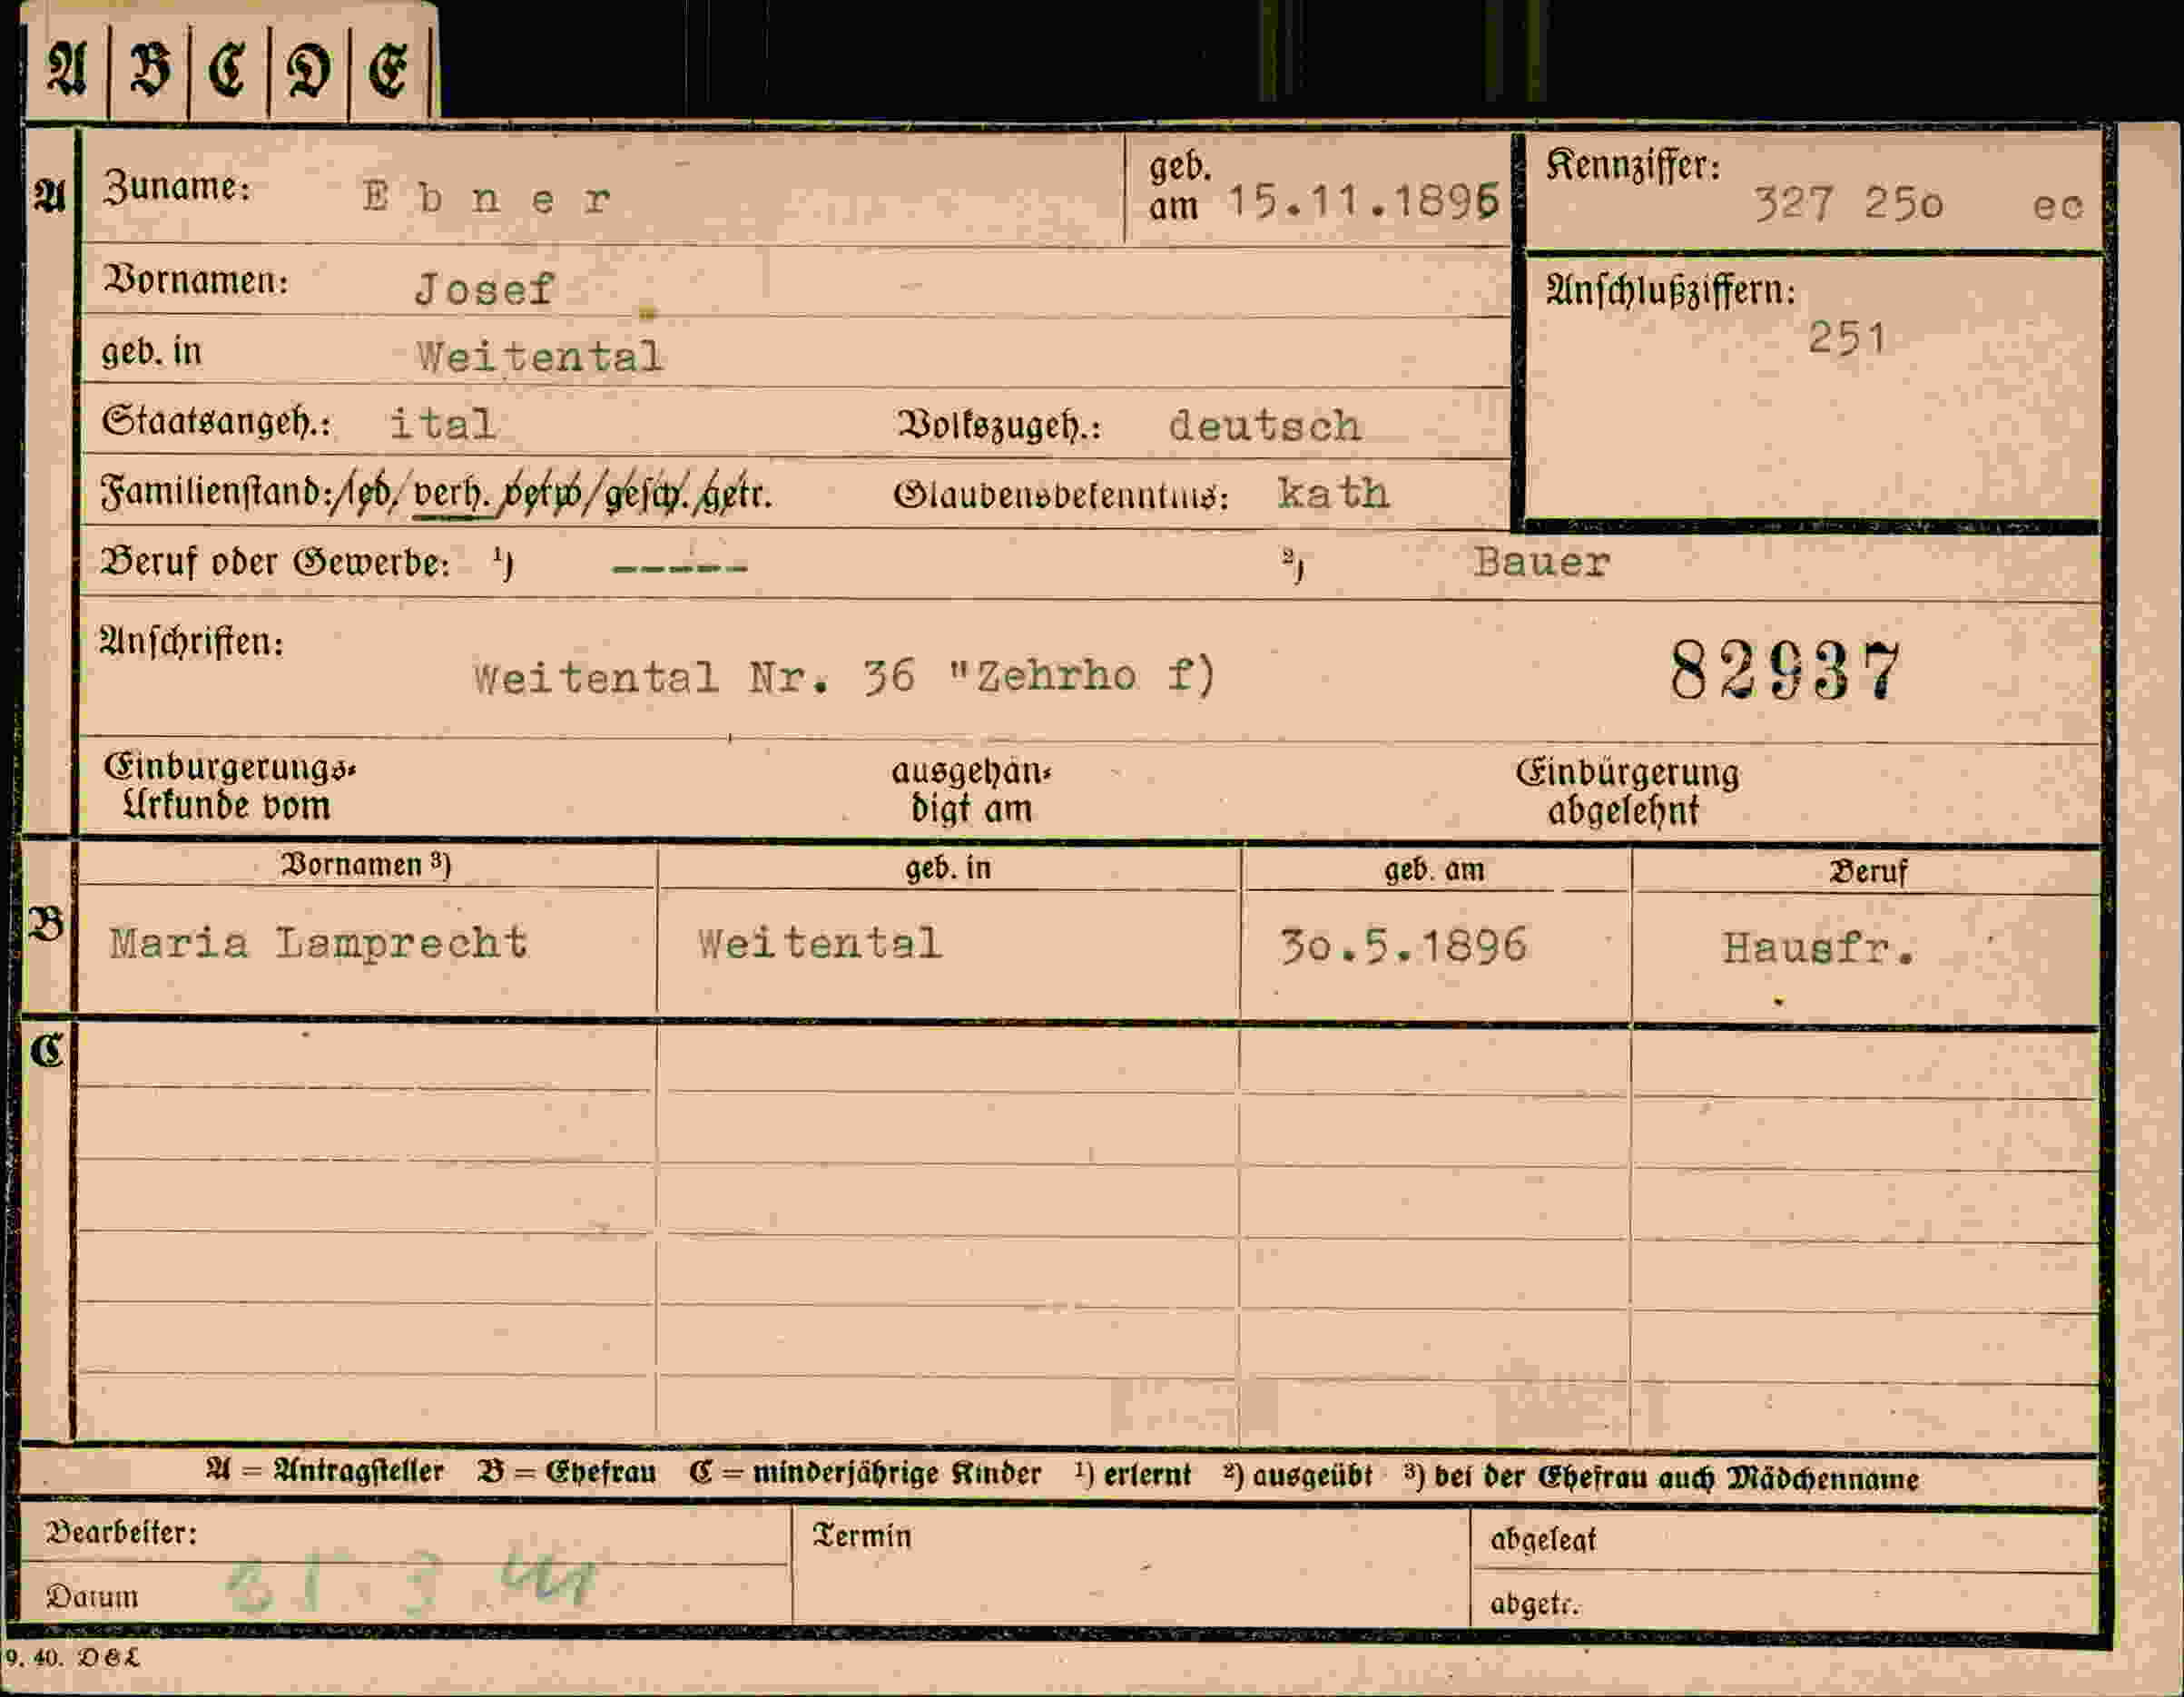 A B C D E
A Zuname: Ebner geb. am 15.11.1896 Kennziffer: 327 25o ec
Vornamen: Josef Anschlußziffern:
geb. in Weitental 251
Staatsangeh.: ital Volkszugeh.: deutsch
Familienstand: led. verh. verw. gesch. getr. Glaubensbekenntnis: kath
Beruf oder Gewerbe: ¹) ----- ²) Bauer
Anschriften: Weitental Nr. 36 "Zehrho f) 82937
Einbürgerungs- ausgehän- Einbürgerung
Urkunde vom digt am abgelehnt
Vornamen ³) geb. in geb. am Beruf
B Maria Lamprecht Weitental 3o.5.1896 Hausfr.
C
A = Antragsteller B = Ehefrau C = minderjährige Kinder ¹) erlernt ²) ausgeübt ³) bei der Ehefrau auch Mädchenname
Bearbeiter: Termin abgelegt
Datum 31.3.41 abgetr.
9. 40. DEL